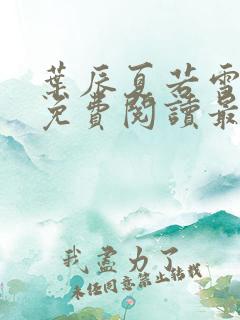 葉辰夏若雪
免費閱讀最
我盡力了
未經同意禁止轉載